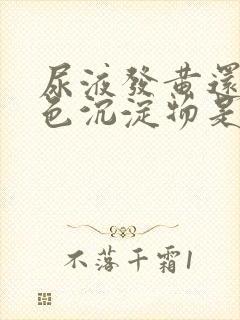 尿液發黃還
色沉淀物是
不落千霜1